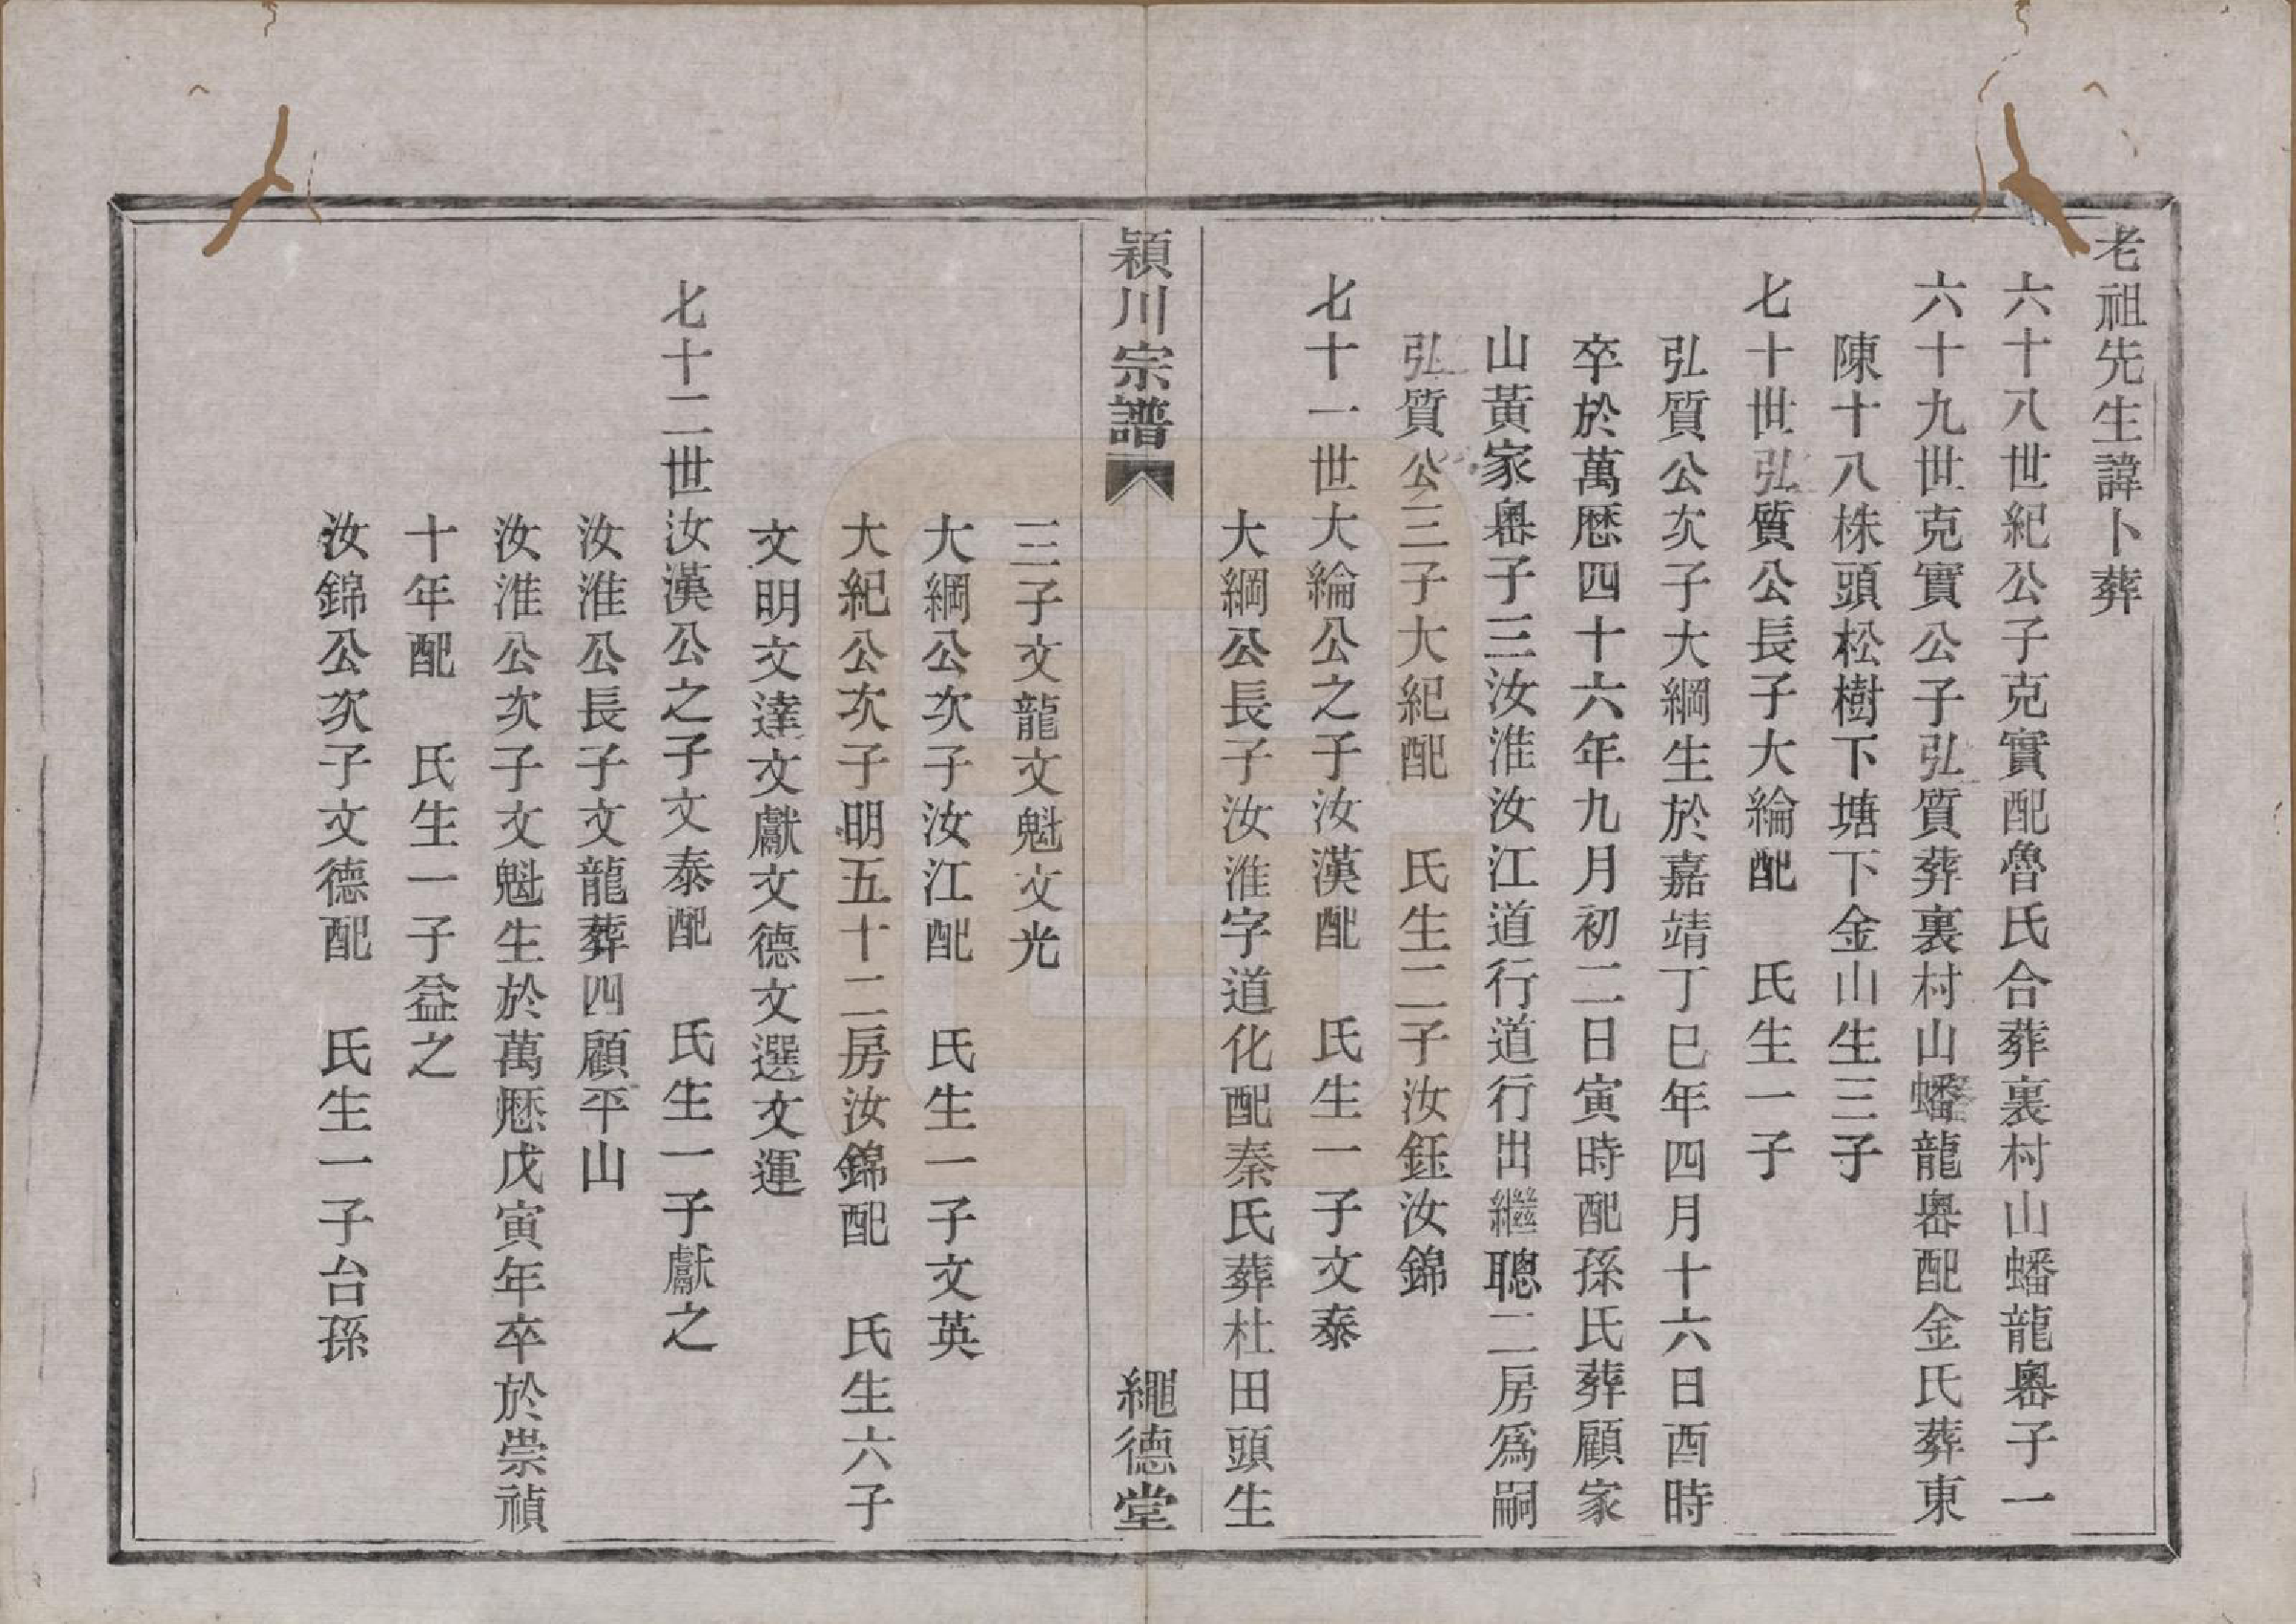 老祖先生諱卜葬
六十八世紀公子克實配魯氏合葬裏村山蟠龍嶴子一
六十九世克實公子弘質葬裏村山蟠龍嶴配金氏葬東
陳十八株頭松樹下塘下金山生三子
七十世弘質公長子大綸配　氏生一子
弘質公次子大綱生於嘉靖丁巳年四月十六日酉時
卒於萬厯四十六年九月初二日寅時配孫氏葬顧家
山黃家嶴子三汝淮汝江道行道行出繼聰二房爲嗣
弘質公三子大紀配　氏生二子汝鈺汝錦
七十一世大綸公之子汝漢配　氏生一子文泰
大綱公長子汝淮字道化配秦氏葬杜田頭生
穎川宗譜
繩德堂
三子文龍文魁文光
大綱公次子汝江配　氏生一子文英
大紀公次子明五十二房汝錦配　氏生六子
文明文達文獻文德文選文運
七十二世汝漢公之子文泰配　氏生一子獻之
汝淮公長子文龍葬四顧平山
汝淮公次子文魁生於萬厯戊寅年卒於崇禎
十年配　氏生一子益之
汝錦公次子文德配　氏生一子台孫